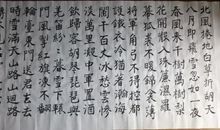 北風捲地白草折胡天
八月即飛雪忽如一夜
春風來千樹萬樹梨
花開散入珠簾濕羅
幕狐裘不暖錦衾薄
將軍角弓不得控都
護鐵衣冷猶著瀚海
闌干百丈冰愁雲慘
淡萬里凝中軍置酒
飲歸客胡琴琵琶與
羌笛紛紛暮雪下轅
門風掣紅旗凍不翻
輪臺東門送君去去
時雪滿天山路山迴路